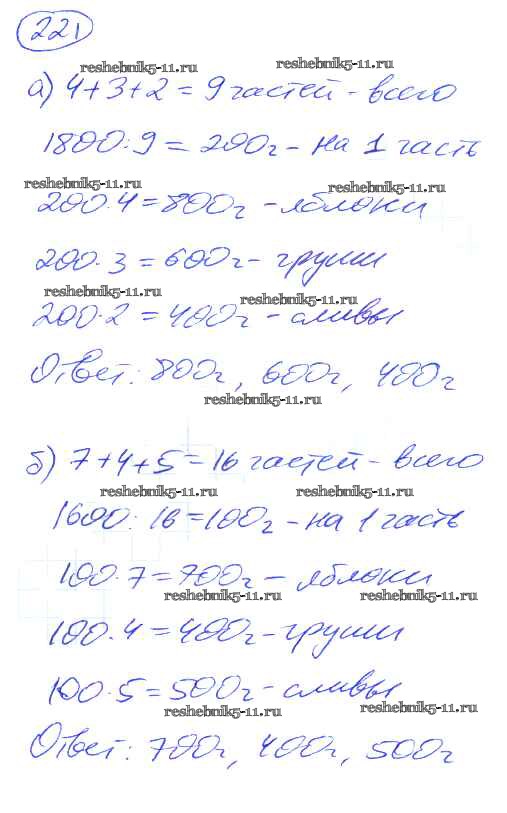 221
reshebnik5-11.ru reshebnik5-11.ru
а) 4+3+2 = 9 частей - всего
1800:9 = 200г - на 1 часть
reshebnik5-11.ru reshebnik5-11.ru
200·4 = 800г - яблоки
200·3 = 600г - груши
reshebnik5-11.ru reshebnik5-11.ru
200·2 = 400г - сливы
Ответ: 800г, 600г, 400г
reshebnik5-11.ru
б) 7+4+5 = 16 частей - всего
reshebnik5-11.ru reshebnik5-11.ru
1600:16 = 100г - на 1 часть
100·7 = 700г - яблоки
reshebnik5-11.ru reshebnik5-11.ru
100·4 = 400г - груши
100·5 = 500г - сливы
reshebnik5-11.ru reshebnik5-11.ru
Ответ: 700г, 400г, 500г